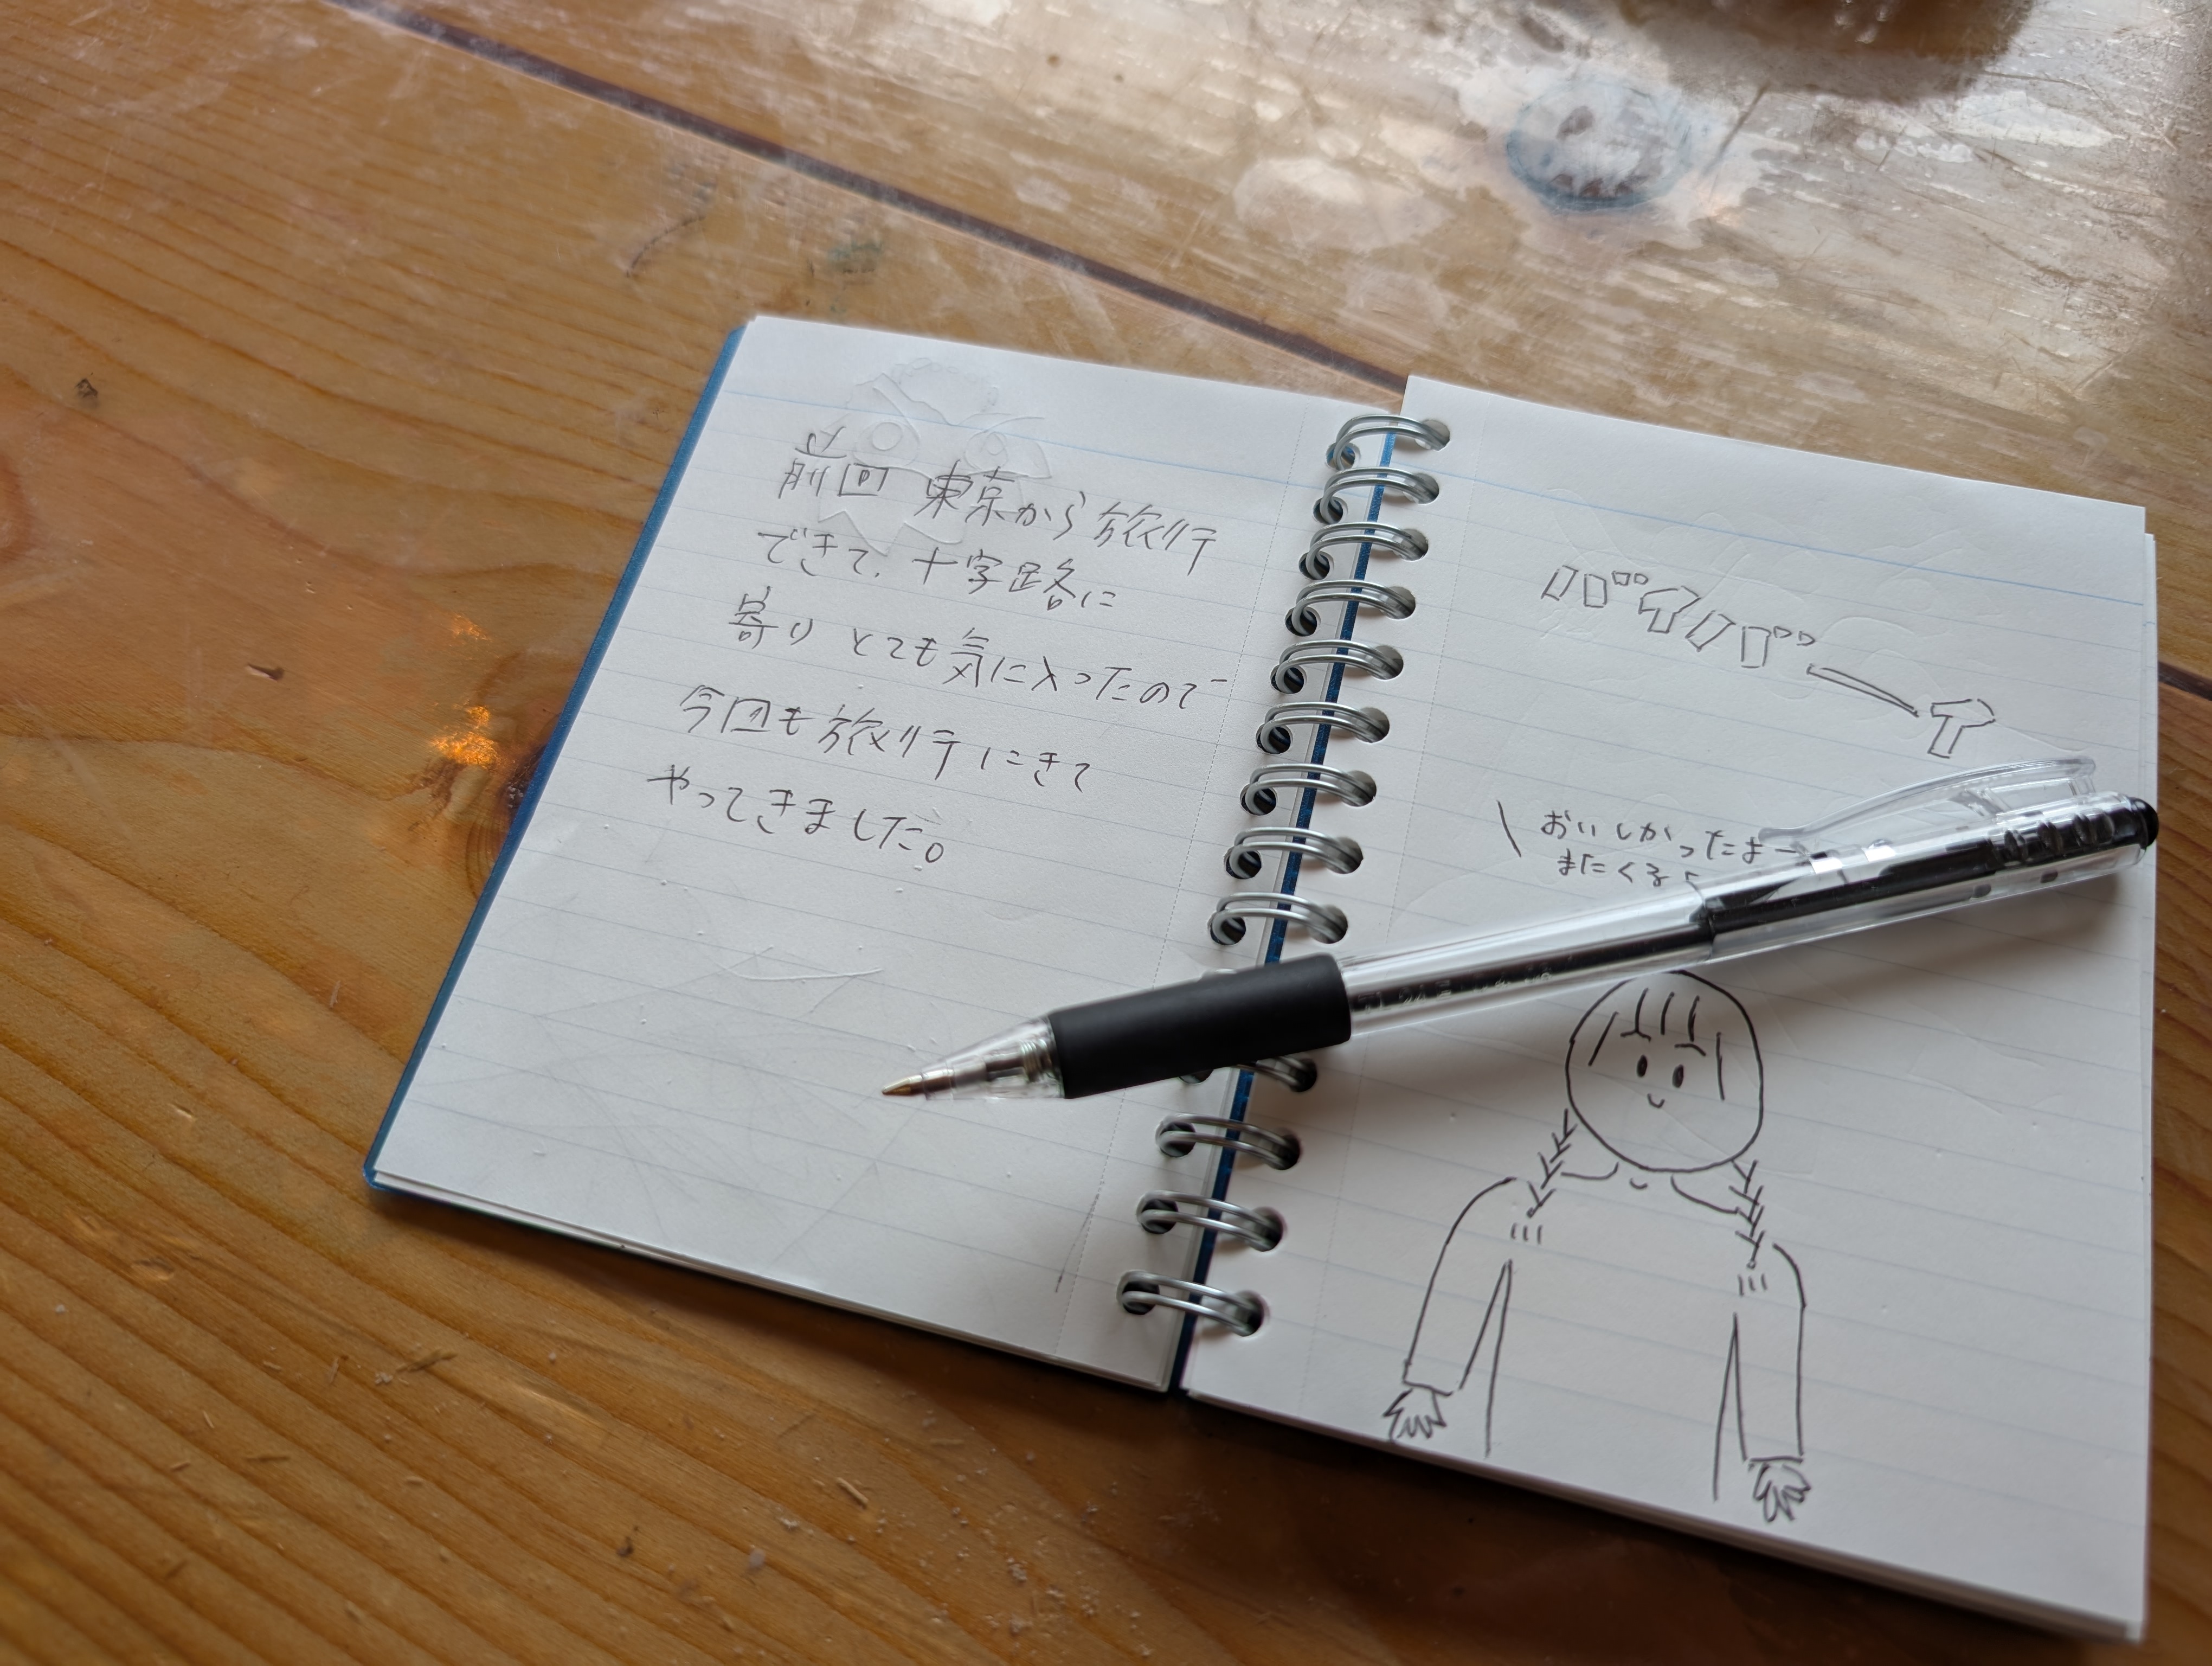 前回 東京から旅行
できて、十字路に
寄り とても気に入ったので
今回も旅行にきて
やってきました。
バイバーイ
\ おいしかったよー
またくる